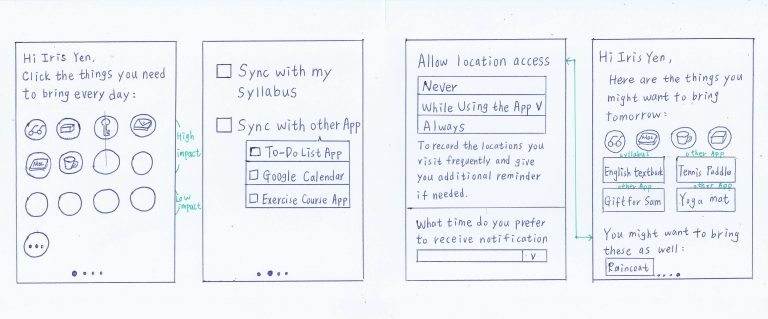 Hi Iris Yen,
Click the things you need
to bring every day:
Mac
High
impact
Low
impact
Sync with my
Syllabus
Sync with other App
To-Do List App
Google Calendar
Exercise Course App
Allow location access
Never
While Using the App V
Always
To record the locations you
visit frequently and give
you additional reminder
if needed.
What time do you prefer
to receive notification
V
Hi Iris Yen,
Here are the things you
might want to bring
tomorrow:
Mac
syllabus
other App
English textbook
Tennis Paddle
other App
other App
Gift for Sam
Yoga mat
You might want to bring
these as well:
Raincoat